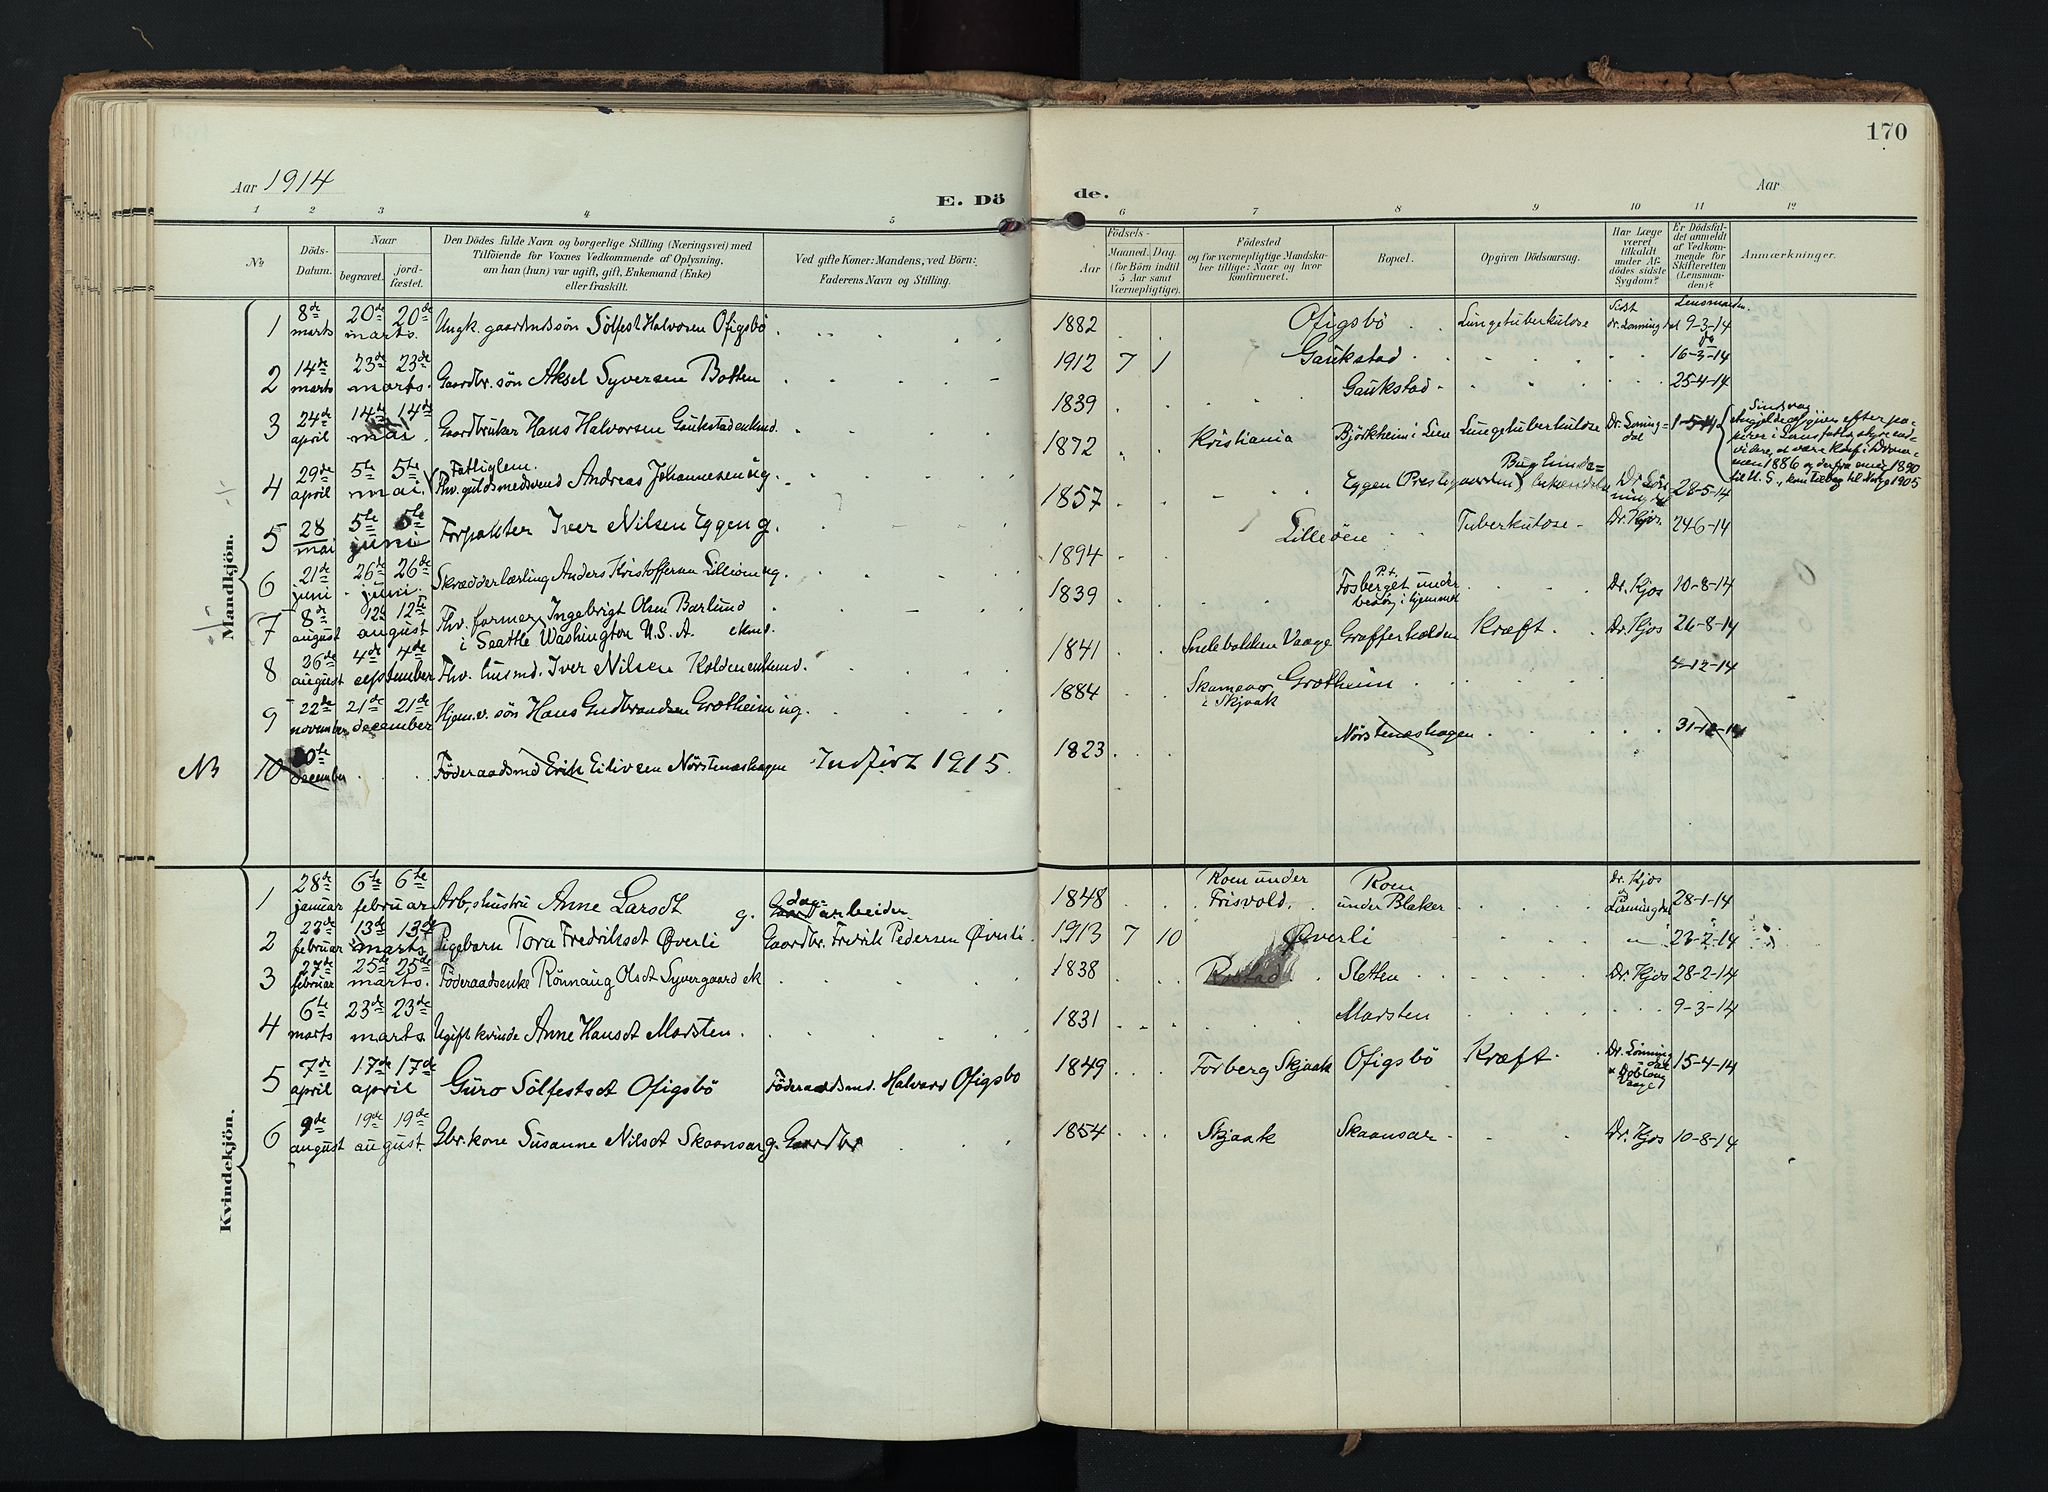 170
Aar 1914
E. Dö de.
Aar
1 2 3 4 5 6 7 8 9 10 11 12
No
Döds-Datum.
Naar
begravet.
jord-fæstet.
Den Dödes fulde Navn og borgerlige Stilling (Næringsvei) med
Tilföiende for Voxnes Vedkommende af Oplysning,
om han (hun) var ugift, gift, Enkemand (Enke)
eller fraskilt.
Ved gifte Koner: Mandens, ved Börn:
Faderens Navn og Stilling.
Födsels-
Aar
Maaned. Dag.
(for Börn indtil
5 Aar samt
Værnepligtige).
Födested
og for værnepligtige Mandska-
ber tillige: Naar og hvor
konfirmeret.
Bopæl.
Opgiven Dödsaarsag.
Har Læge
været
tilkaldt
under Af-
dödes sidste
Sygdom?
Er Dödsfal-
det anmeldt
af Vedkom-
mende for
Skifteretten
(Lensman-
den)?
Anmærkninger.
Mandkjön.
1 8de marts 20de marts. 20de Ungk. gaardmdssön Sölfest Halvorsen Ofigsbö 1882 Ofigsbö Lungetuberkulose Dr. Lønningdal Lensmanden. 9-3-14
2 14de marts 23de marts. 23de Gaardbr. sön Aksel Syversen Botten 1912 7 1 Gaukstad 16-3-14
3 24de april 14de mai 14de Gaardbruker Hans Halvorsen Gaukstad enkmd. 1839 Gaukstad 25-4-14
4 29de april 5te mai. 5te Fattiglem. Fhv. guldsmedsvend Andreas Johannesen ug. 1872 Kristiania Björkheim i Lien Lungetuberkulose Dr. Lønningdal 1-5-14
5 28 mai 5te juni 5te Forpakter Iver Nilsen Eggen g. 1857 Eggen Prestegaarden Dr. Lønningdal 28-5-14
6 21de juni 26de juni. 26de Skrædderlærling Anders Kristoffersen Lilleöen ug. 1894 Lilleöen Tuberkulose Dr. Kjos. 24-6-14
7 8de august 12te august 12te Fhv. farmer Ingebrigt Olsen Barlund i Seattle Washington U.S.A. ekmd. 1839 P.t. Fosberget under besög i hjemmet Dr. Kjos 10-8-14
8 26de august 4de september 4de Fhv. husmd. Iver Nilsen Kolden enkmd. 1841 Snelebakken Vaage Grafferkolden Kræft. Dr. Kjos 26-8-14
9 22de november 21de december 21de Hjemv. sön Hans Gudbrandsen Grotheim ug. 1884 Skamsar i Skjaak Grotheim -12-14
NB 10 december Föderaadsmd Erik Eilivsen Nörstenæshagen Indfört 1915. 1823 Nörstenæshagen 31-12-14
Kvindekjön.
1 28de januar 6te februar 6te Arb.s hustru Anne Larsdt g. dagarbeider. 1848 Roen under Frisvold. Roen under Blaker Dr. Kjos Lønningdal 28-1-14
2 23de februar 13de marts. 13de Pigebarn Tora Fredriksdt Øverli Gaardbr. Fredrik Pedersen Øverli. 1913 7 10 Øverli 23-2-14
3 27de februar 25de marts. 25de Föderaadsenke Rönnaug Olsdt Syvergaard ek 1838 Rystad Sletten Dr. Kjos 28-2-14
4 6te marts 23de marts. 23de Ugift kvinde Anne Hansdt Marsten. 1831 Marsten 9-3-14
5 7de april 17de april 17de Guro Sölfestsdt Ofigsbö Föderaadsmd. Halvard Ofigsbö 1849 Forberg Skjaak Ofigsbö Kræft. Dr. Lønningdal 15-4-14
6 9de august 19de august. 19de Gbr. kone Susanne Nilsdt Skaansar g. Gaardbr 1854 Skjaak Skaansar Dr. Kjos 10-8-14